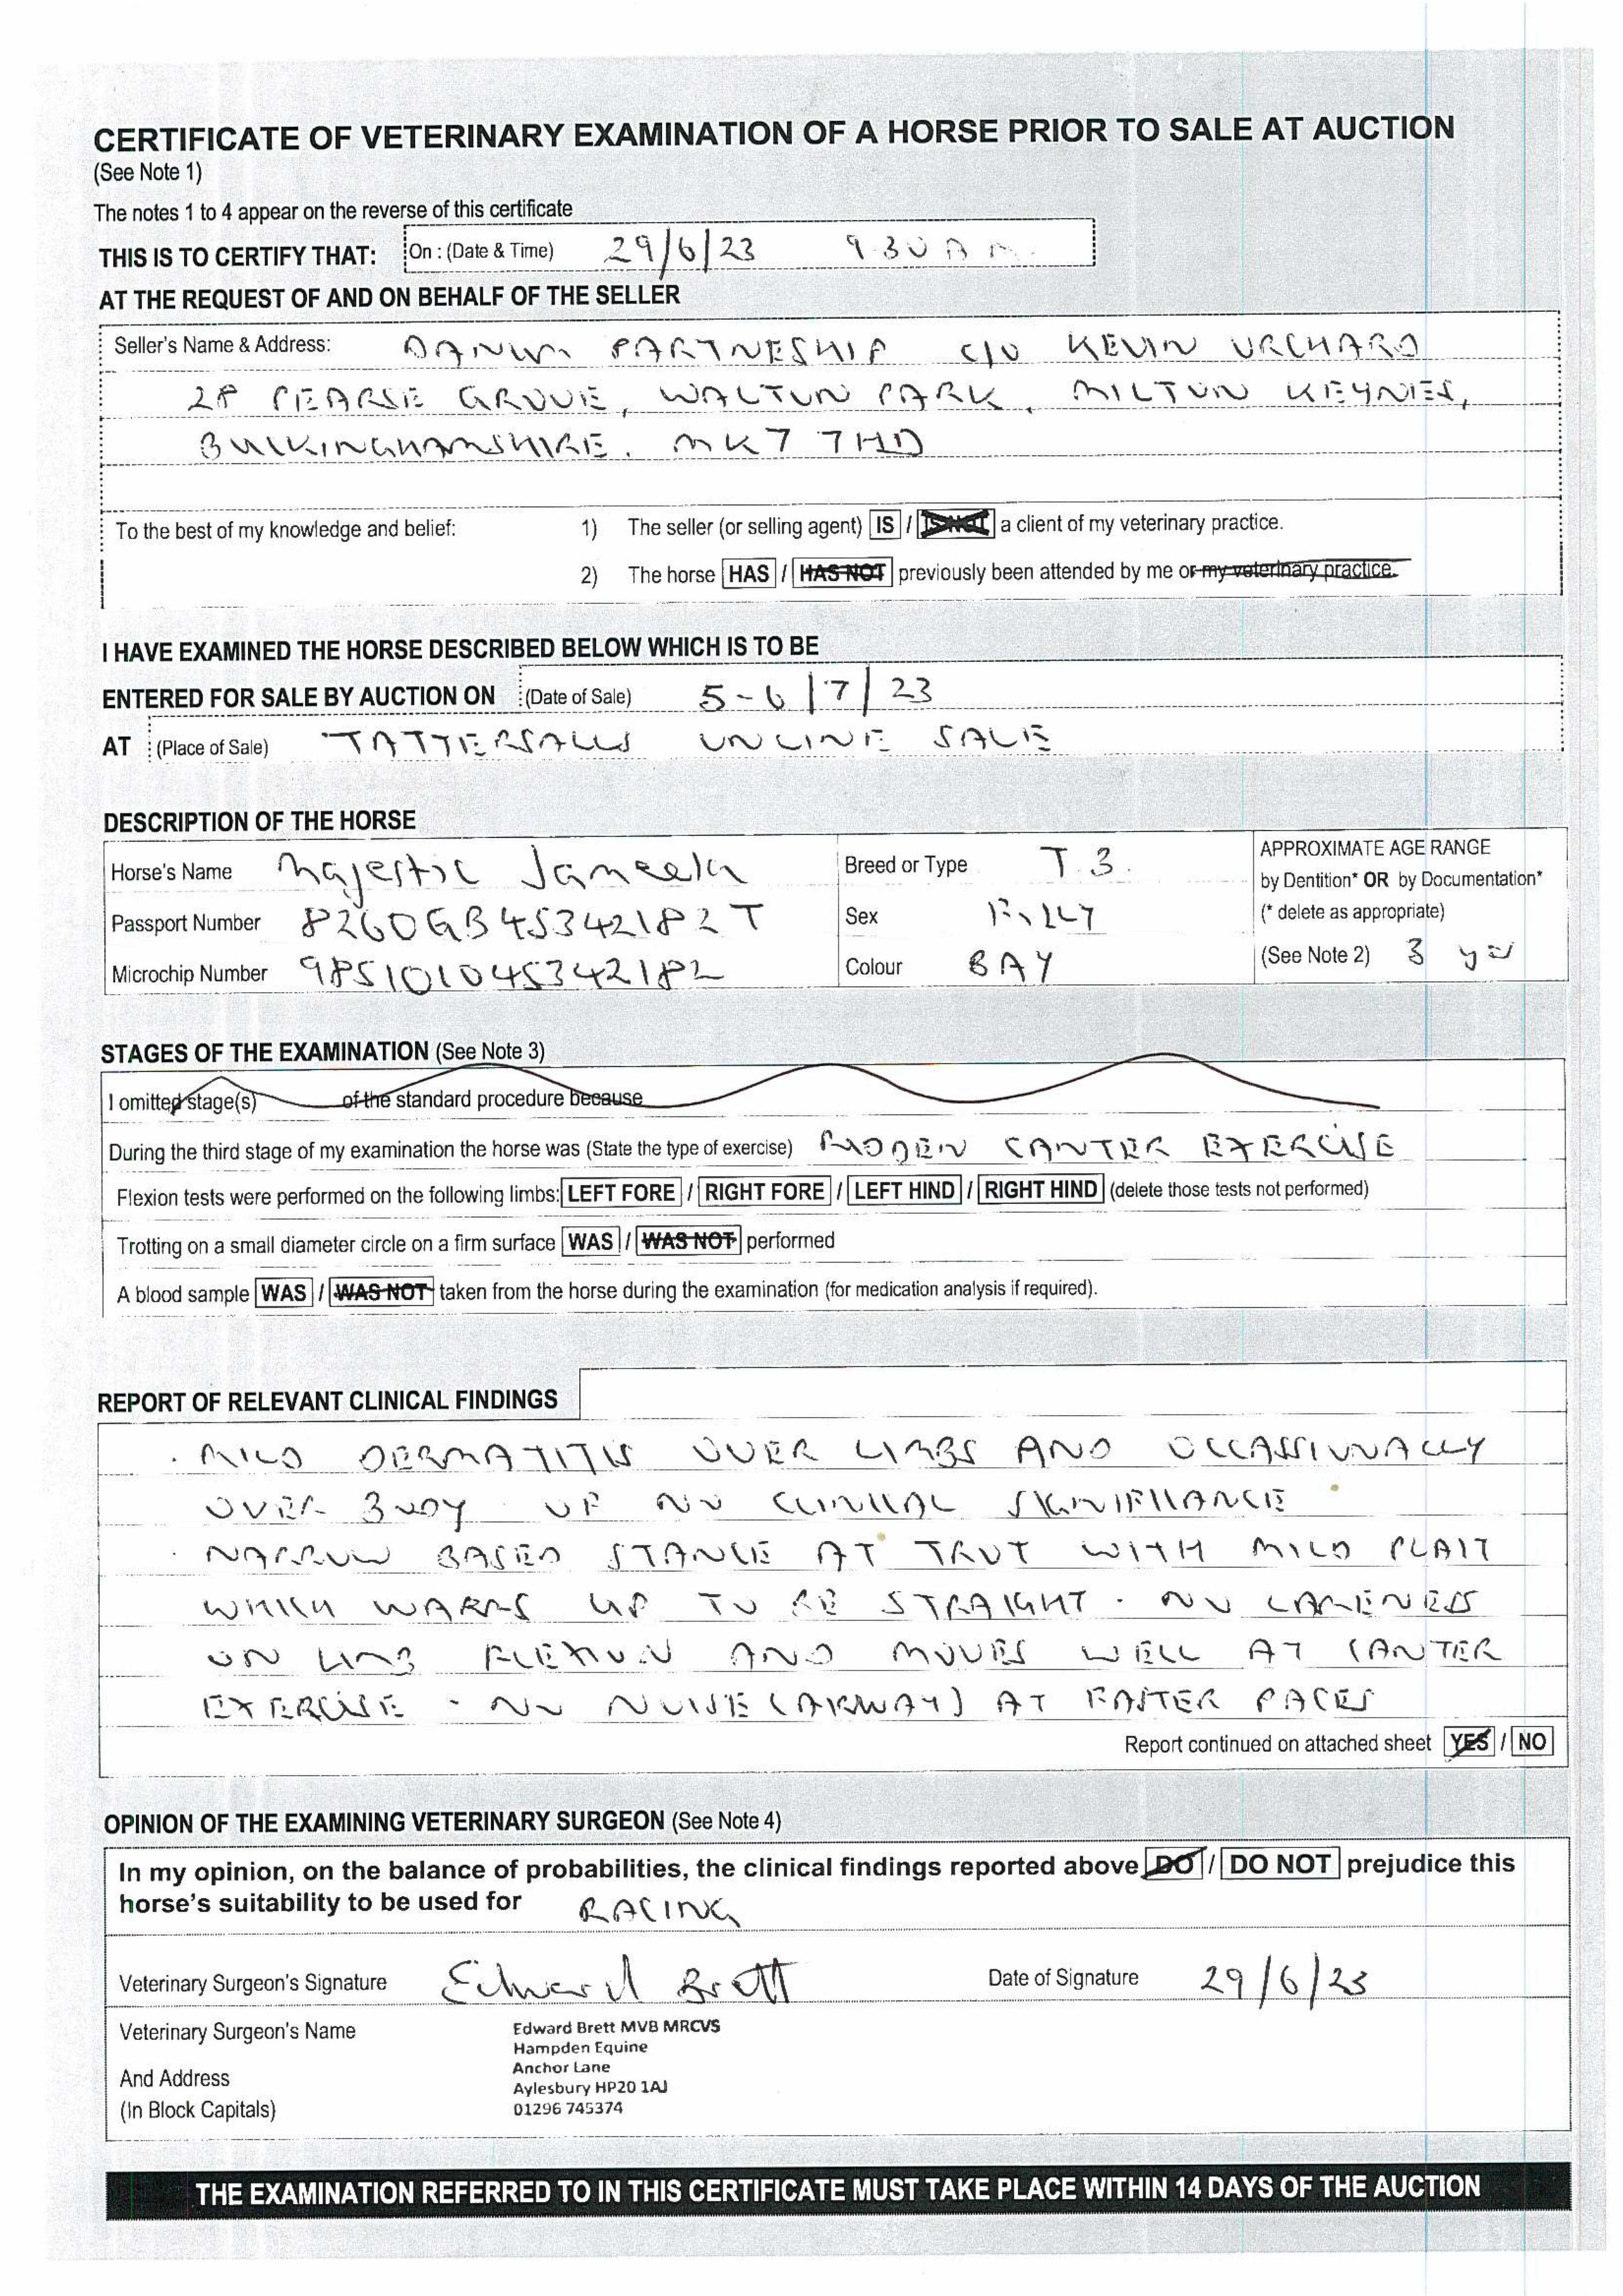 CERTIFICATE OF VETERINARY EXAMINATION OF A HORSE PRIOR TO SALE AT AUCTION
(See Note 1)
The notes 1 to 4 appear on the reverse of this certificate
THIS IS TO CERTIFY THAT: On : (Date & Time) 29/6/23 9.30 A M.
AT THE REQUEST OF AND ON BEHALF OF THE SELLER
Seller's Name & Address: DANUM PARTNESHIP C/O KEVIN ORCHARD
28 PEARSE GROVE, WALTON PARK, MILTON KEYNES,
BUCKINGHAMSHIRE. MK7 7HD
To the best of my knowledge and belief: 1) The seller (or selling agent) IS / IS NOT a client of my veterinary practice.
2) The horse HAS / HAS NOT previously been attended by me or my veterinary practice.
I HAVE EXAMINED THE HORSE DESCRIBED BELOW WHICH IS TO BE
ENTERED FOR SALE BY AUCTION ON (Date of Sale) 5-6/7/23
AT (Place of Sale) TATTERSALLS ONLINE SALE
DESCRIPTION OF THE HORSE
Horse's Name Majestic Jameela Breed or Type T.B. APPROXIMATE AGE RANGE
by Dentition* OR by Documentation*
Passport Number 8260GB45342182T Sex FILLY (* delete as appropriate)
Microchip Number 985101045342182 Colour BAY (See Note 2) 3 yrs
STAGES OF THE EXAMINATION (See Note 3)
I omitted stage(s) of the standard procedure because
During the third stage of my examination the horse was (State the type of exercise) RIDDEN CANTER EXERCISE
Flexion tests were performed on the following limbs: LEFT FORE / RIGHT FORE / LEFT HIND / RIGHT HIND (delete those tests not performed)
Trotting on a small diameter circle on a firm surface WAS / WAS NOT performed
A blood sample WAS / WAS NOT taken from the horse during the examination (for medication analysis if required).
REPORT OF RELEVANT CLINICAL FINDINGS
. MILD DERMATITIS OVER LIMBS AND OCCASSIONALLY
OVER BODY OF NO CLINICAL SIGNIFICANCE
. NARROW BASED STANCE AT TROT WITH MILD PLAIT
WHICH WARMS UP TO BE STRAIGHT. NO LAMENESS
ON LIMB FLEXION AND MOVES WELL AT CANTER
EXERCISE - NO NOISE (AIRWAY) AT FASTER PACES
Report continued on attached sheet YES / NO
OPINION OF THE EXAMINING VETERINARY SURGEON (See Note 4)
In my opinion, on the balance of probabilities, the clinical findings reported above DO / DO NOT prejudice this
horse's suitability to be used for RACING
Veterinary Surgeon's Signature Edward Brett Date of Signature 29/6/23
Veterinary Surgeon's Name Edward Brett MVB MRCVS
Hampden Equine
And Address Anchor Lane
Aylesbury HP20 1AJ
(In Block Capitals) 01296 745374
THE EXAMINATION REFERRED TO IN THIS CERTIFICATE MUST TAKE PLACE WITHIN 14 DAYS OF THE AUCTION